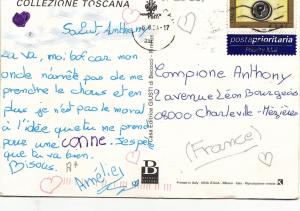 COLLEZIONE TOSCANA
Salut Anthony
Ça va, moi bof car mon
onde n'arrête pas de me
prendre le chaus et en
plus je n'est pas le moral
à l'idée que tu me prend
pour une conne. J'espère
que tu va bien.
Bisous.
Amélie
postaprioritaria
Priority Mail
Campione Anthony
2 avenue Léon Bourgeois
08000 Charleville-Mézières
(France)
B